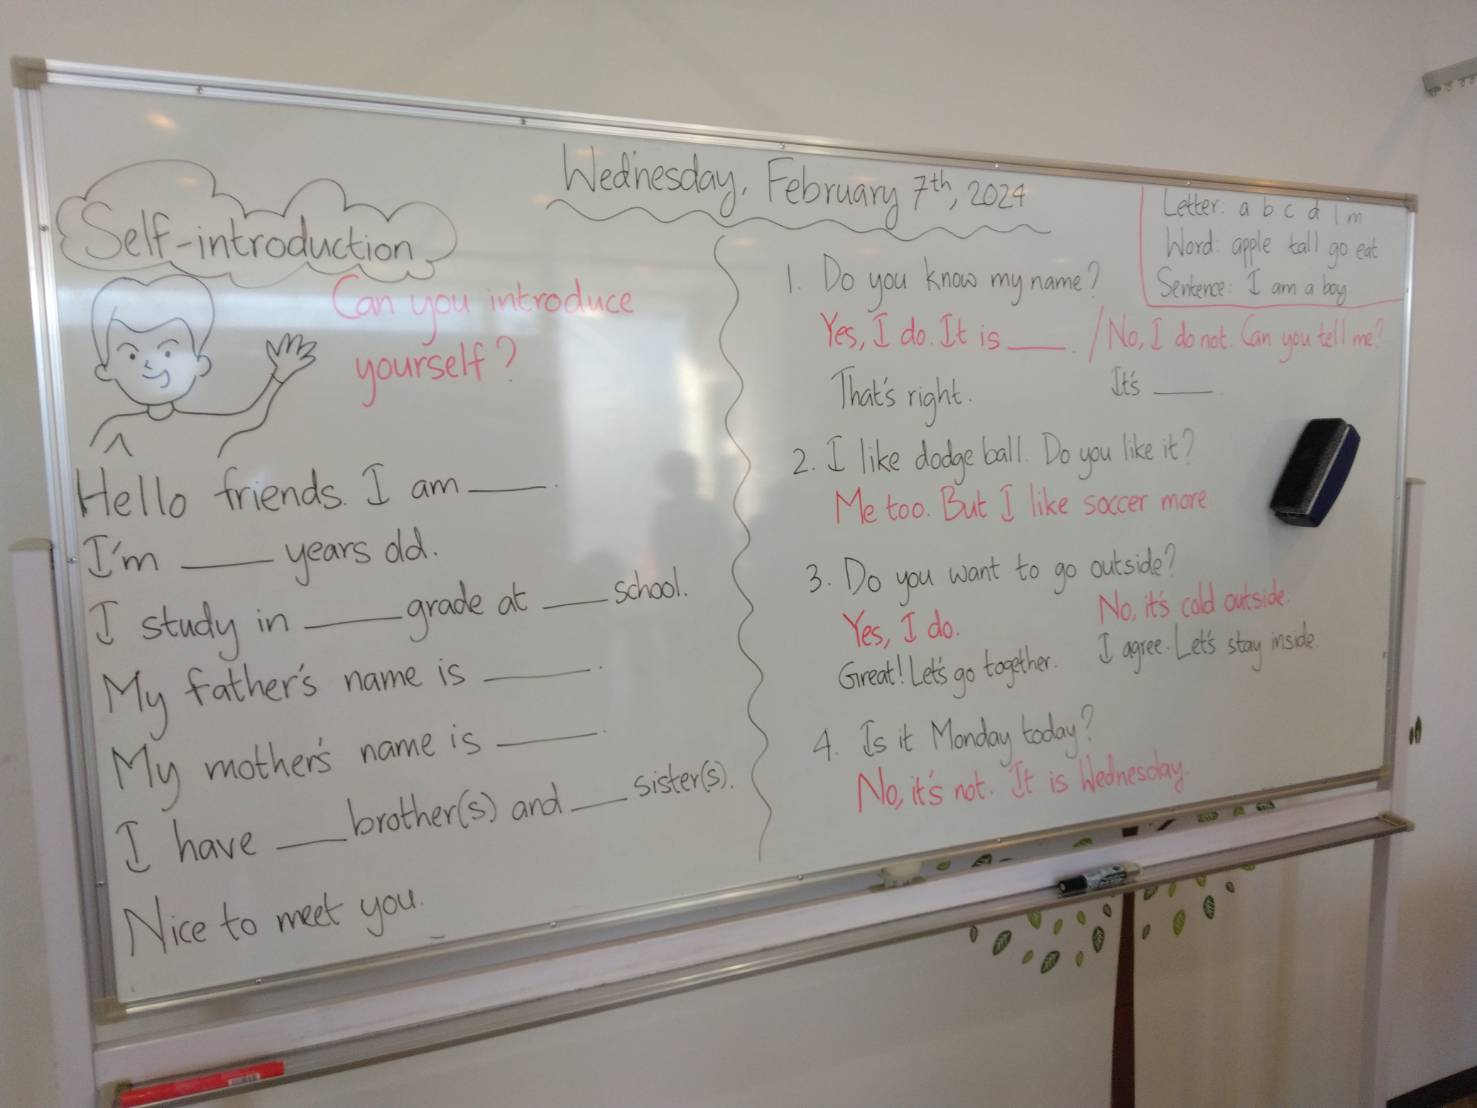 Wednesday, February 7th, 2024
Self-introduction
Can you introduce
yourself?
Hello friends. I am ____.
I'm ____ years old.
I study in ____ grade at ____ school.
My father's name is ____.
My mother's name is ____.
I have ____ brother(s) and ____ sister(s).
Nice to meet you.
Letter: a b c d l m
Word: apple tall go eat
Sentence: I am a boy
1. Do you know my name?
Yes, I do. It is ____. / No, I do not. Can you tell me?
That's right. It's ____.
2. I like dodge ball. Do you like it?
Me too. But I like soccer more
3. Do you want to go outside?
Yes, I do. No, it's cold outside.
Great! Let's go together. I agree. Let's stay inside.
4. Is it Monday today?
No, it's not. It is Wednesday.